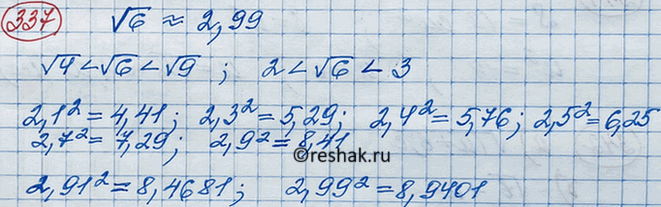 337 √6 ≈ 2,99
√4 < √6 < √9 ; 2 < √6 < 3
2,1² = 4,41 ; 2,3² = 5,29 ; 2,4² = 5,76 ; 2,5² = 6,25
2,7² = 7,29 ; 2,9² = 8,41
©reshak.ru
2,91² = 8,4681 ; 2,99² = 8,9401